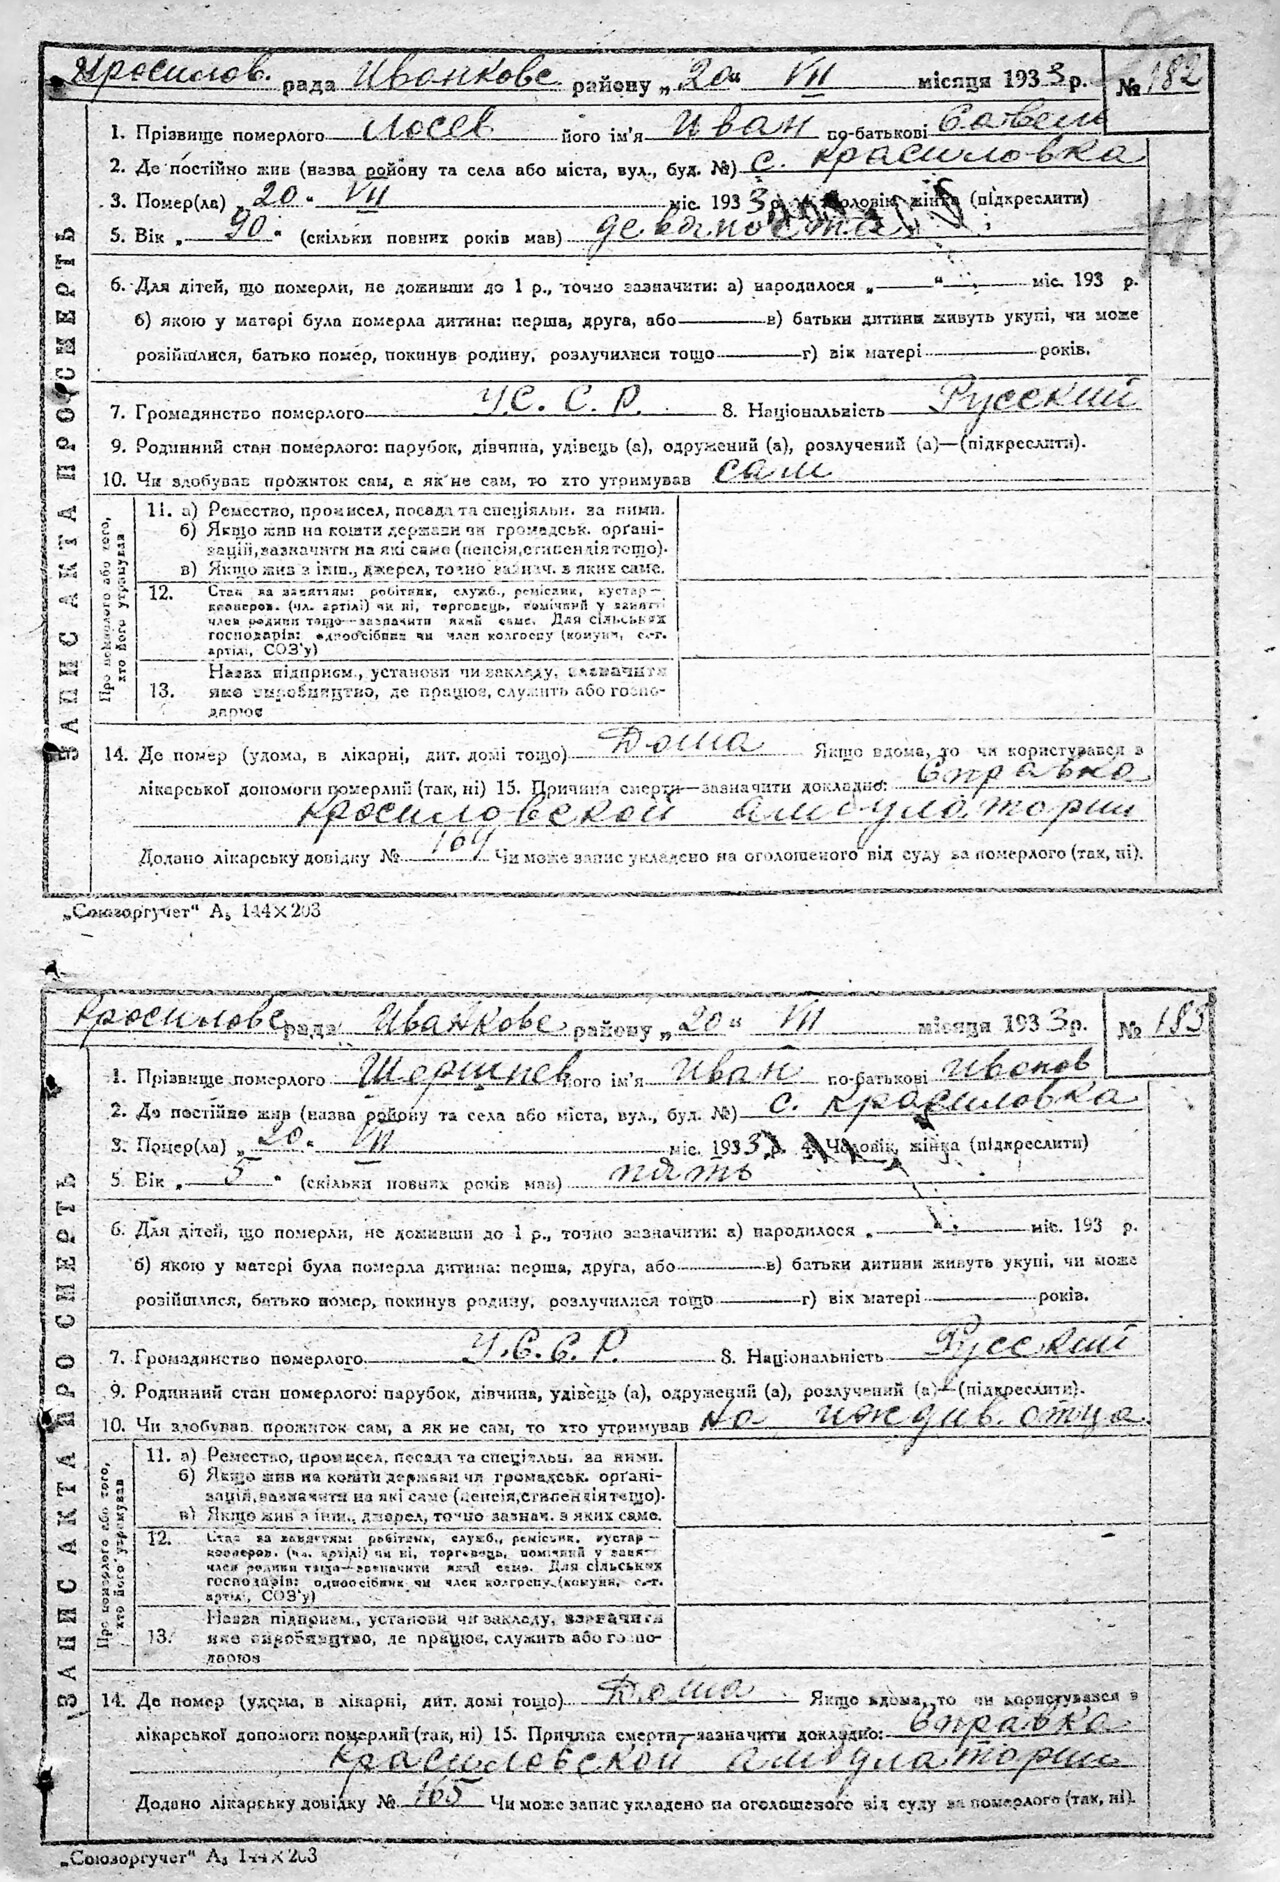 Красилов. рада Иванкове району „20“ VII місяця 1933 р. № 182
ЗАПИС АКТА ПРО СМЕРТЬ
1. Прізвище померлого Лосев його ім'я Иван по-батькові Савели
2. Де постійно жив (назва району та села або міста, вул., буд. №) с. Красиловка
3. Помер(ла) „20“ VII міс. 1933 р. 4. Чоловік, жінка (підкреслити)
5. Вік „90“ (скільки повних років мав) девяносто
6. Для дітей, що померли, не доживши до 1 р., точно зазначити: а) народилося „ “ міс. 193 р.
б) якою у матері була померла дитина: перша, друга, або в) батьки дитини живуть укупі, чи може
розійшлися, батько помер, покинув родину, розлучилися тощо г) вік матері років.
7. Громадянство померлого У.С.С.Р. 8. Національність Русский
9. Родинний стан померлого: парубок, дівчина, удівець (а), одружений (а), розлучений (а)—(підкреслити).
10. Чи здобував прожиток сам, а як не сам, то хто утримував сам
Про померлого або того, хто його утримував
11. а) Ремество, промисел, посада та спеціяльн. за ними.
б) Якщо жив на кошти держави чи громадськ. орґані-
зацій, зазначити на які саме (пенсія, стипендія тощо).
в) Якщо жив з інш., джерел, точно зазнач. з яких саме.
12. Стан за заняттям: робітник, служб., ремісник, кустар—
кооперов. (чл. артілі) чи ні, торговець, помічний у занятт
член родини тощо—зазначити який саме. Для сільських
господарів: одноосібник чи член колгоспу (комуни, с.-г.
артілі, СОЗ'у)
Назва підприєм., установи чи закладу, зазначити
13. яке виробництво, де працює, служить або госпо-
дарює
14. Де помер (удома, в лікарні, дит. домі тощо) Дома Якщо вдома, то чи користувався з
лікарської допомоги померлий (так, ні) 15. Причина смерти—зазначити докладно: Справка
Красиловской амбулатории
Додано лікарську довідку № 164 Чи може запис укладено на оголошеного від суду за померлого (так, ні).
„Союзоргучет“ А₅ 144×203
Красиловс рада Иванкове району „20“ VII місяця 1933 р. № 183
ЗАПИС АКТА ПРО СМЕРТЬ
1. Прізвище померлого його ім'я Иван по-батькові Иванов
2. Де постійно жив (назва району та села або міста, вул., буд. №) с. Красиловка
3. Помер(ла) „20“ VII міс. 1933 р. 4. Чоловік, жінка (підкреслити)
5. Вік „5“ (скільки повних років мав) пять
6. Для дітей, що померли, не доживши до 1 р., точно зазначити: а) народилося „ “ міс. 193 р.
б) якою у матері була померла дитина: перша, друга, або в) батьки дитини живуть укупі, чи може
розійшлися, батько помер, покинув родину, розлучилися тощо г) вік матері років.
7. Громадянство померлого У.С.С.Р. 8. Національність Русский
9. Родинний стан померлого: парубок, дівчина, удівець (а), одружений (а), розлучений (а)—(підкреслити).
10. Чи здобував прожиток сам, а як не сам, то хто утримував на иждив. отца
Про померлого або того, хто його утримував
11. а) Ремество, промисел, посада та спеціяльн. за ними.
б) Якщо жив на кошти держави чи громадськ. орґані-
зацій, зазначити на які саме (пенсія, стипендія тощо).
в) Якщо жив з інш., джерел, точно зазнач. з яких саме.
12. Стан за заняттям: робітник, служб., ремісник, кустар—
кооперов. (чл. артілі) чи ні, торговець, помічний у занятт
член родини тощо—зазначити який саме. Для сільських
господарів: одноосібник чи член колгоспу (комуни, с.-г.
артілі, СОЗ'у)
Назва підприєм., установи чи закладу, зазначити
13. яке виробництво, де працює, служить або госпо-
дарює
14. Де помер (удома, в лікарні, дит. домі тощо) Дома Якщо вдома, то чи користувався з
лікарської допомоги померлий (так, ні) 15. Причина смерти—зазначити докладно: Справка
Красиловской амбулатории
Додано лікарську довідку № 165 Чи може запис укладено на оголошеного від суду за померлого (так, ні).
„Союзоргучет“ А₅ 144×203